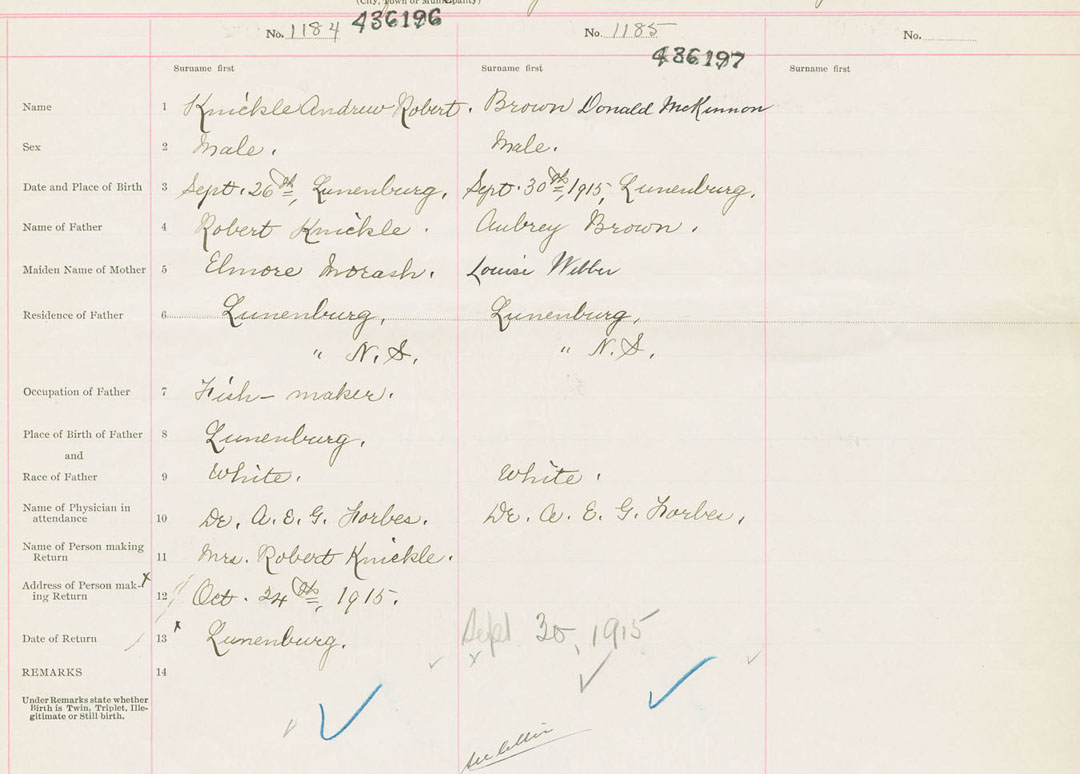 (City, Town or Municipality)
No. 1184 436196 No. 1185 436197 No.
Surname first Surname first Surname first
Name 1 Knickle Andrew Robert. Brown Donald McKinnon
Sex 2 Male. Male.
Date and Place of Birth 3 Sept. 26th, Lunenburg. Sept. 30th, 1915, Lunenburg.
Name of Father 4 Robert Knickle. Aubrey Brown.
Maiden Name of Mother 5 Elmore Morash. Louise Webber
Residence of Father 6 Lunenburg, Lunenburg,
" N.S. " N.S.
Occupation of Father 7 Fish-maker.
Place of Birth of Father 8 Lunenburg.
and
Race of Father 9 White. White.
Name of Physician in
attendance 10 Dr. A. E. G. Forbes. Dr. A. E. G. Forbes.
Name of Person making
Return 11 Mrs. Robert Knickle.
Address of Person mak- x
ing Return 12 Oct. 24th, 1915.
Date of Return 13 x Lunenburg. Sept 30, 1915
x
REMARKS 14
Under Remarks state whether
Birth is Twin, Triplet, Ille-
gitimate or Still birth.